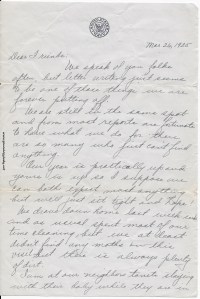 Mar 26, 1935
Dear Friends:
We speak of you folks
often, but letter writing just seems
to be one of those things we are
forever putting off.
We are still in the same spot
and from most reports are fortunate
to have what we do for there
are so many who just can't find
anything.
One year is practically up and
yours is up so I suppose we
can both expect most anything
but we'll just sit tight and hope.
We drove down home last week end
and as usual spent most of our
time cleaning, but we at least
didn't find any moths in this
but there is always plenty
of dirt.
I am at our neighbors tonite staying
with their baby while they are in